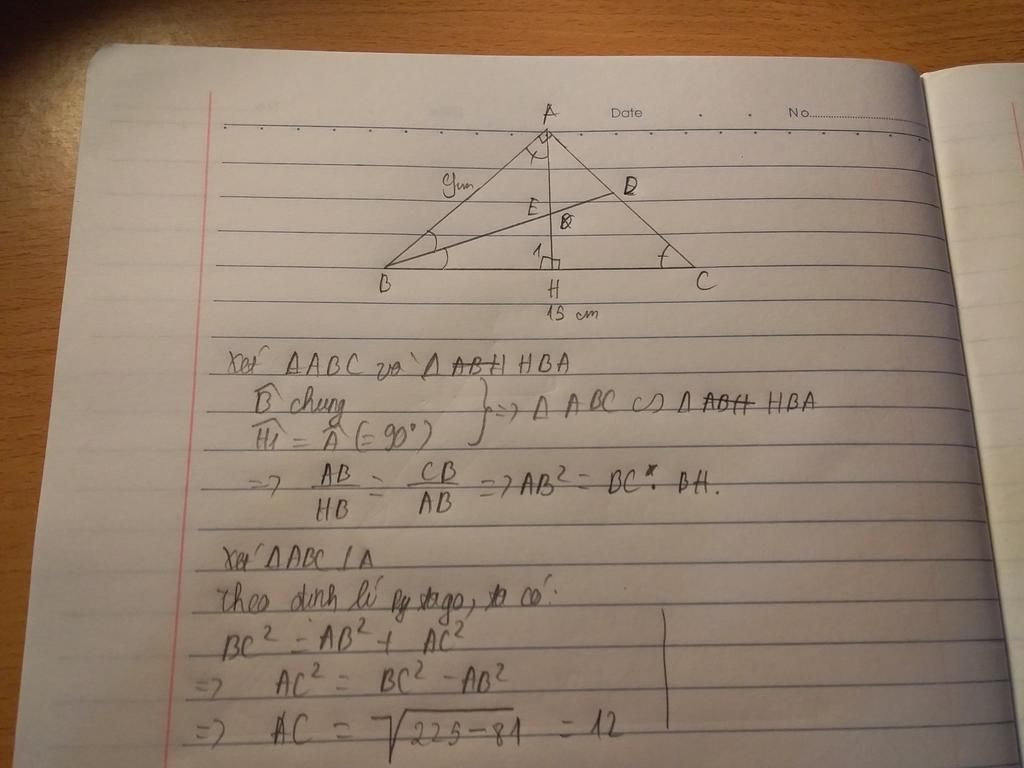 Date No
A
9cm
D
E
1
B H C
15 cm
Xét ΔABC và Δ ABH HBA
B̂ chung
Ĥ1 = Â (= 90°) } => Δ ABC ∽ Δ ABH HBA
=> AB/HB = CB/AB => AB² = BC . BH.
Xét ΔABC ⊥ A
theo định lí Pytago, ta có:
BC² = AB² + AC²
=> AC² = BC² - AB²
=> AC = √(225-81) = 12